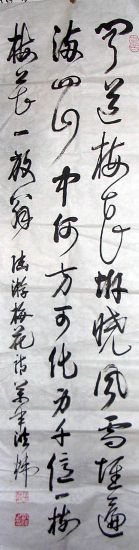 闻道梅花坼晓风雪堆遍
满四山中何方可化身千亿一树
梅花一放翁 陆游梅花诗